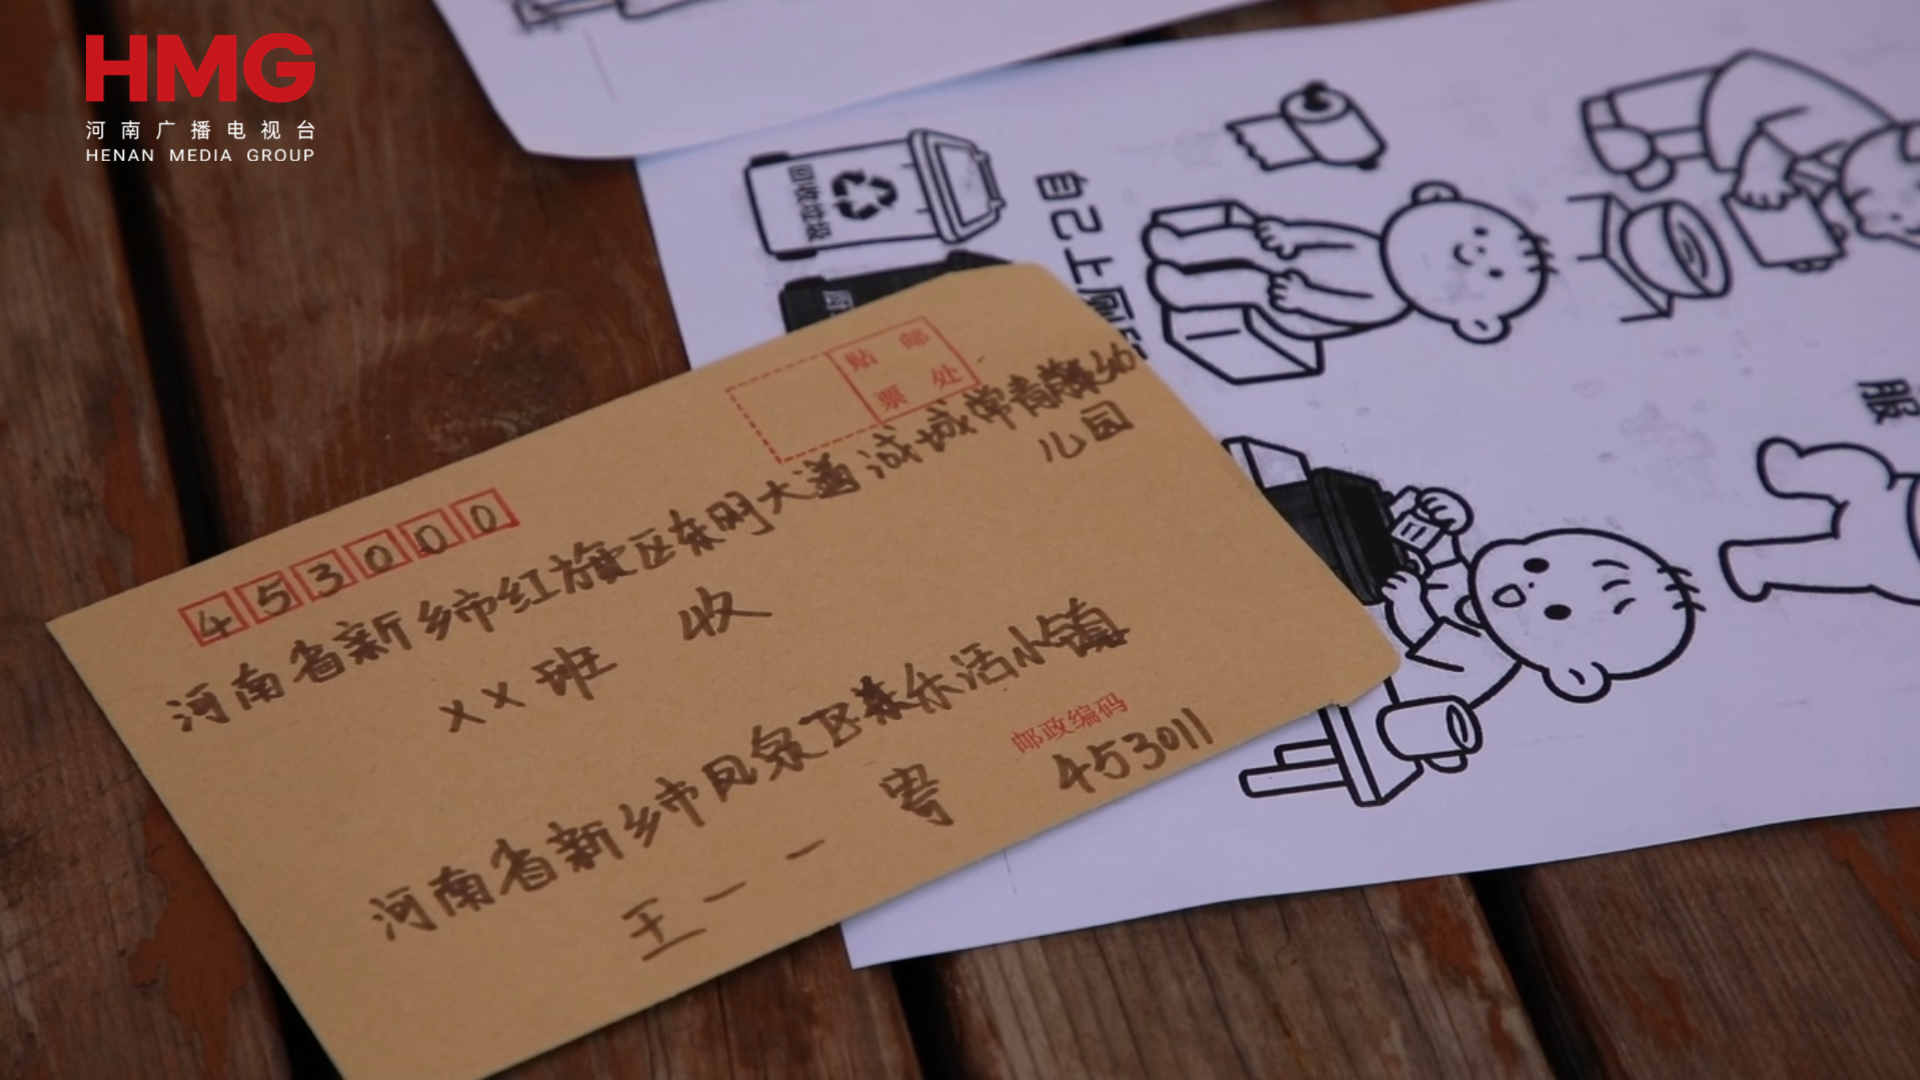 HMG
河南广播电视台
HENAN MEDIA GROUP
回收垃圾
自己上厕所
服
贴邮
票处
453000
河南省新乡市红旗区东明大道诚城常青藤幼
儿园
XX班 收
河南省新乡市凤泉区泰乐活小镇
王一一 寄
邮政编码
453011